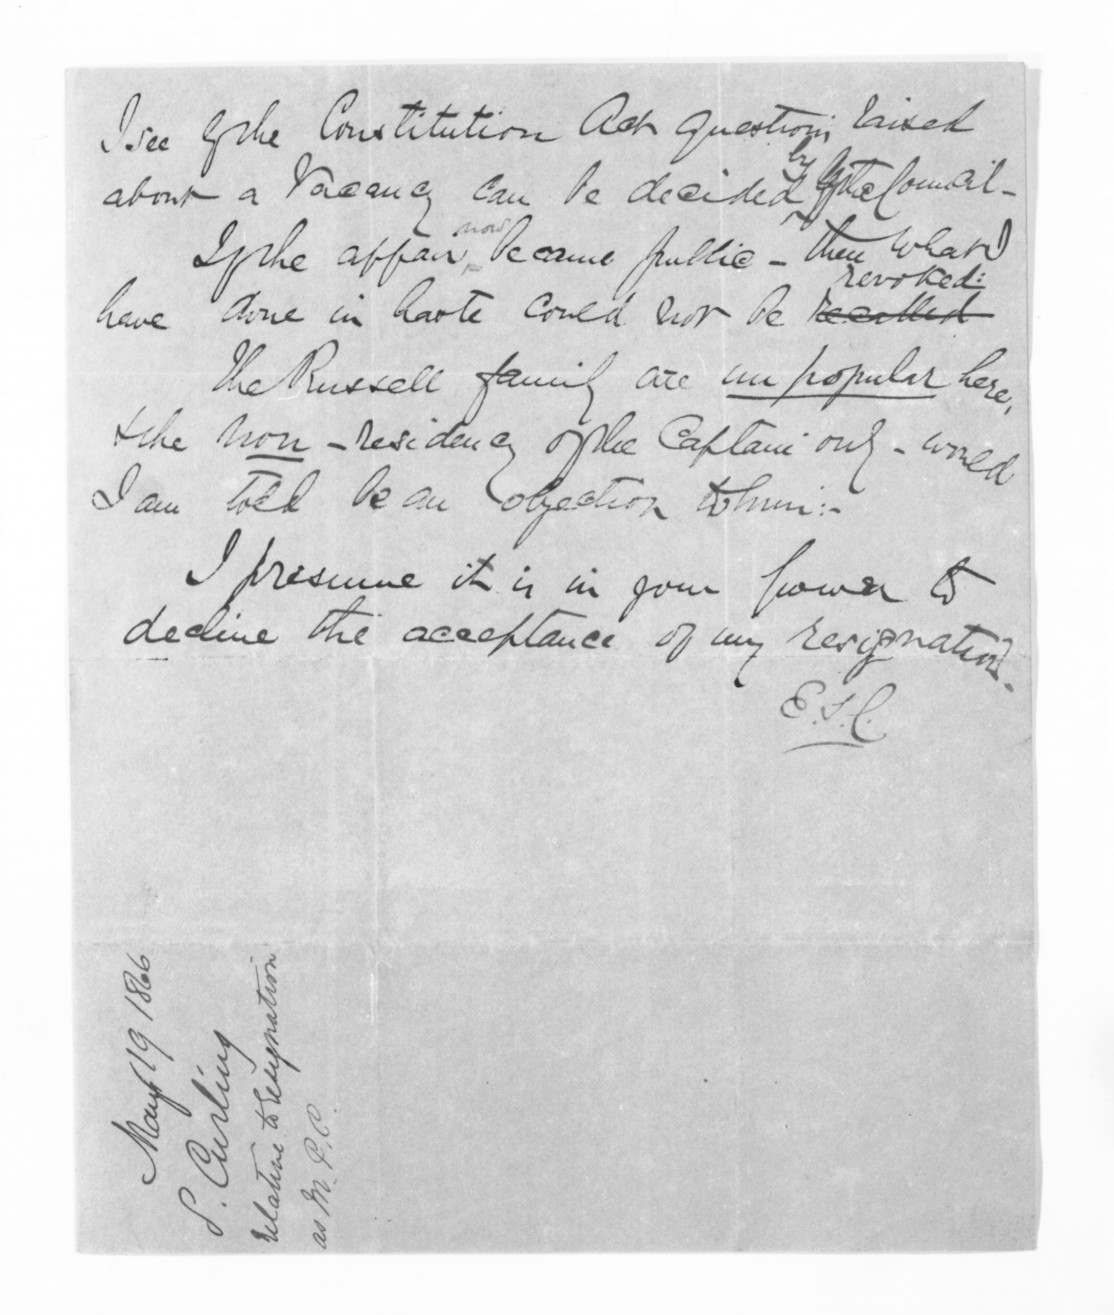 I see by the Constitution Act questions raised
about a Vacancy can be decided by the Council -
If the affair now became public - then what I
have done in haste could not be recalled revoked:
The Russell family are unpopular here,
& the non - residency of the Captain only - would
I am told be an objection to him: -
I presume it is in your power to
decline the acceptance of my resignation.
E.S.C.
May 19 1866
S. Curling
relative to resignation
as M.P.C.